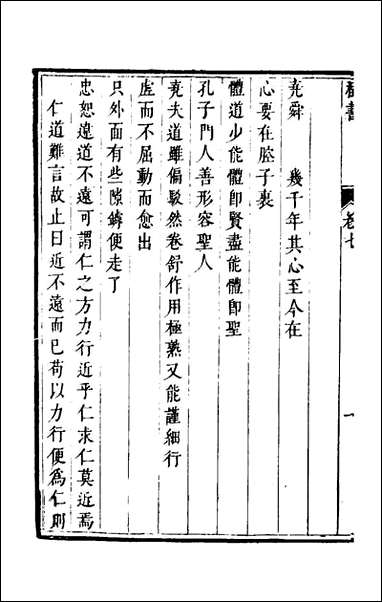 卷七
堯舜　　幾千年其心至今在
心要在腔子裏
體道少能體即賢盡能體即聖
孔子門人善形容聖人
堯夫道雖偏駁然卷舒作用極熟又能謹細行
虛而不屈動而愈出
只外面有些隙罅便走了
忠恕違道不遠可謂仁之方力行近乎仁求仁莫近焉
仁道難言故止曰近不遠而已苟以力行便爲仁則